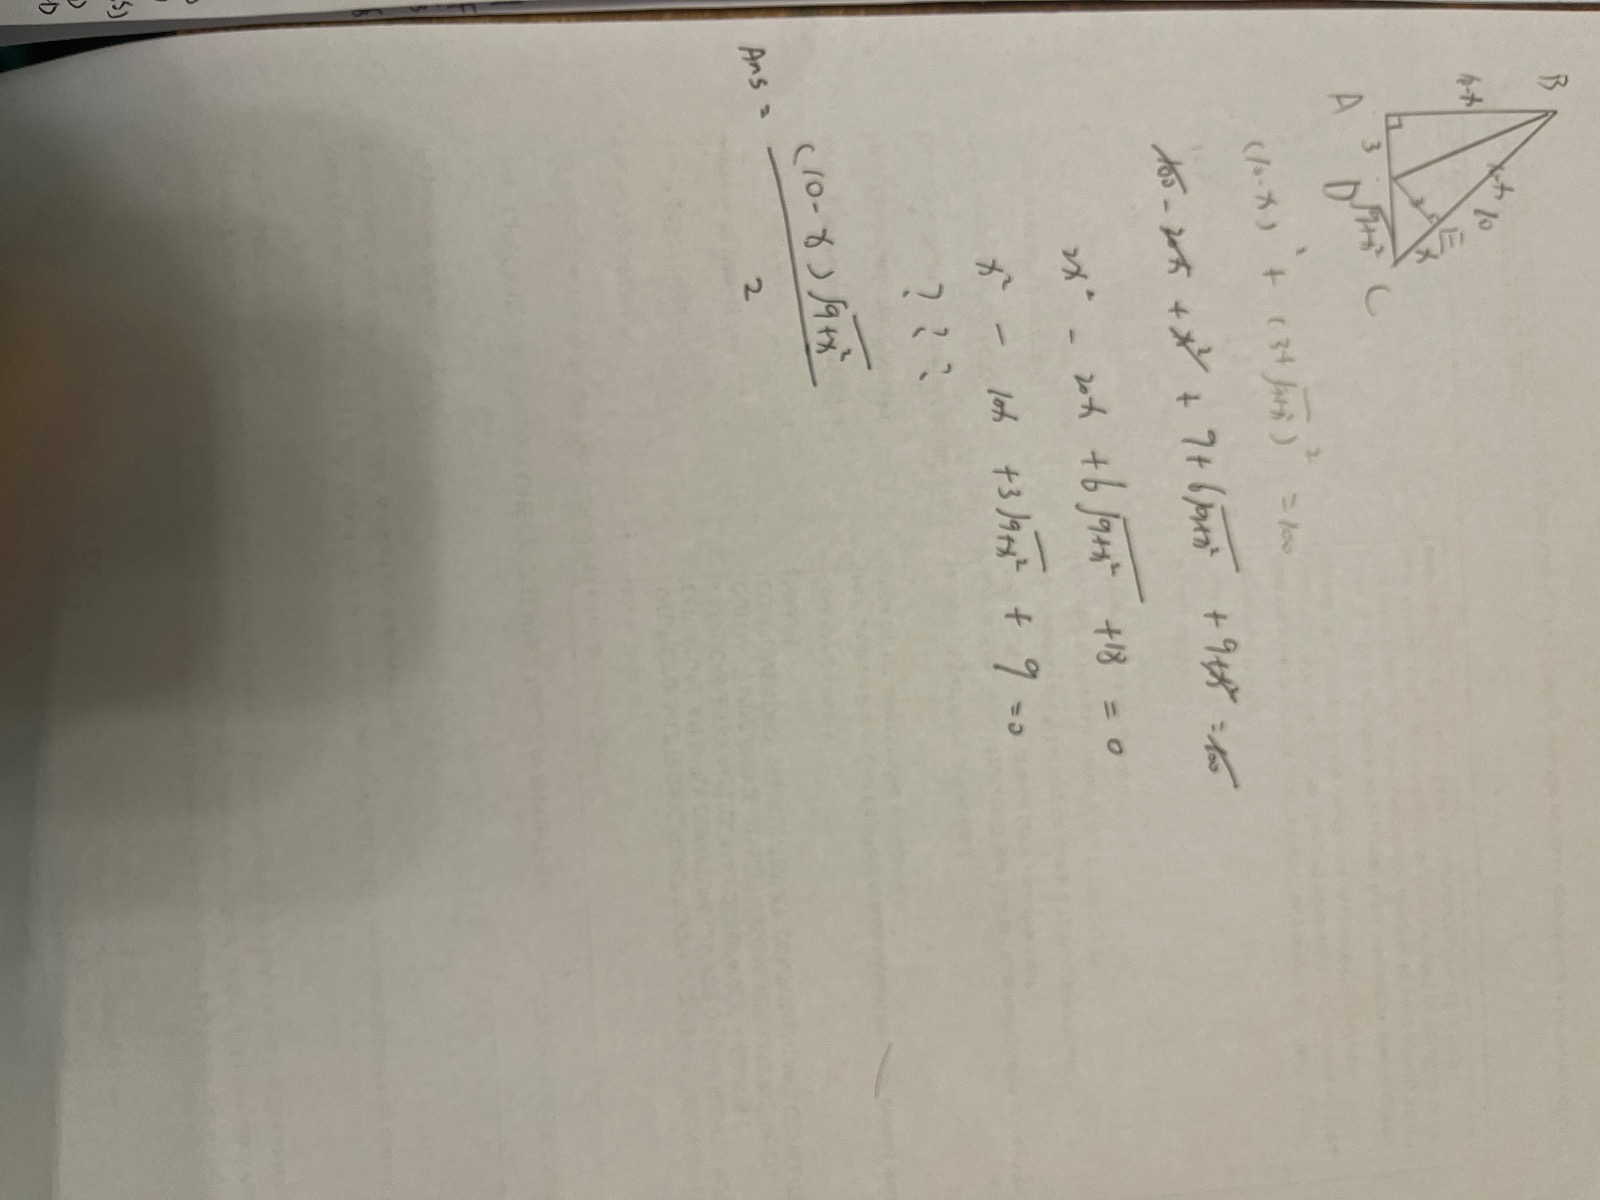 B
10-x
10-x
10
A
3
D
3
E
x
√9+x²
C
(10-x)² + (3+√9+x²)² = 100
100 - 20x + x² + 9 + 6√9+x² + 9+x² = 100
2x² - 20x + 6√9+x² + 18 = 0
x² - 10x + 3√9+x² + 9 = 0
? ? ?
Ans = (10-x)√9+x² / 2